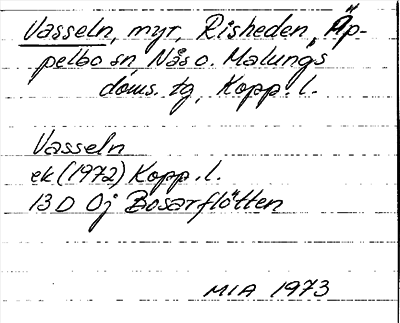 Vasseln, myr, Risheden, Äp-
pelbo sn Nås o. Malungs
doms. tg, Kopp. l.
Vasseln
ek (1972) Kopp. l.
13 D 0j Bosarflötten
MIA 1973